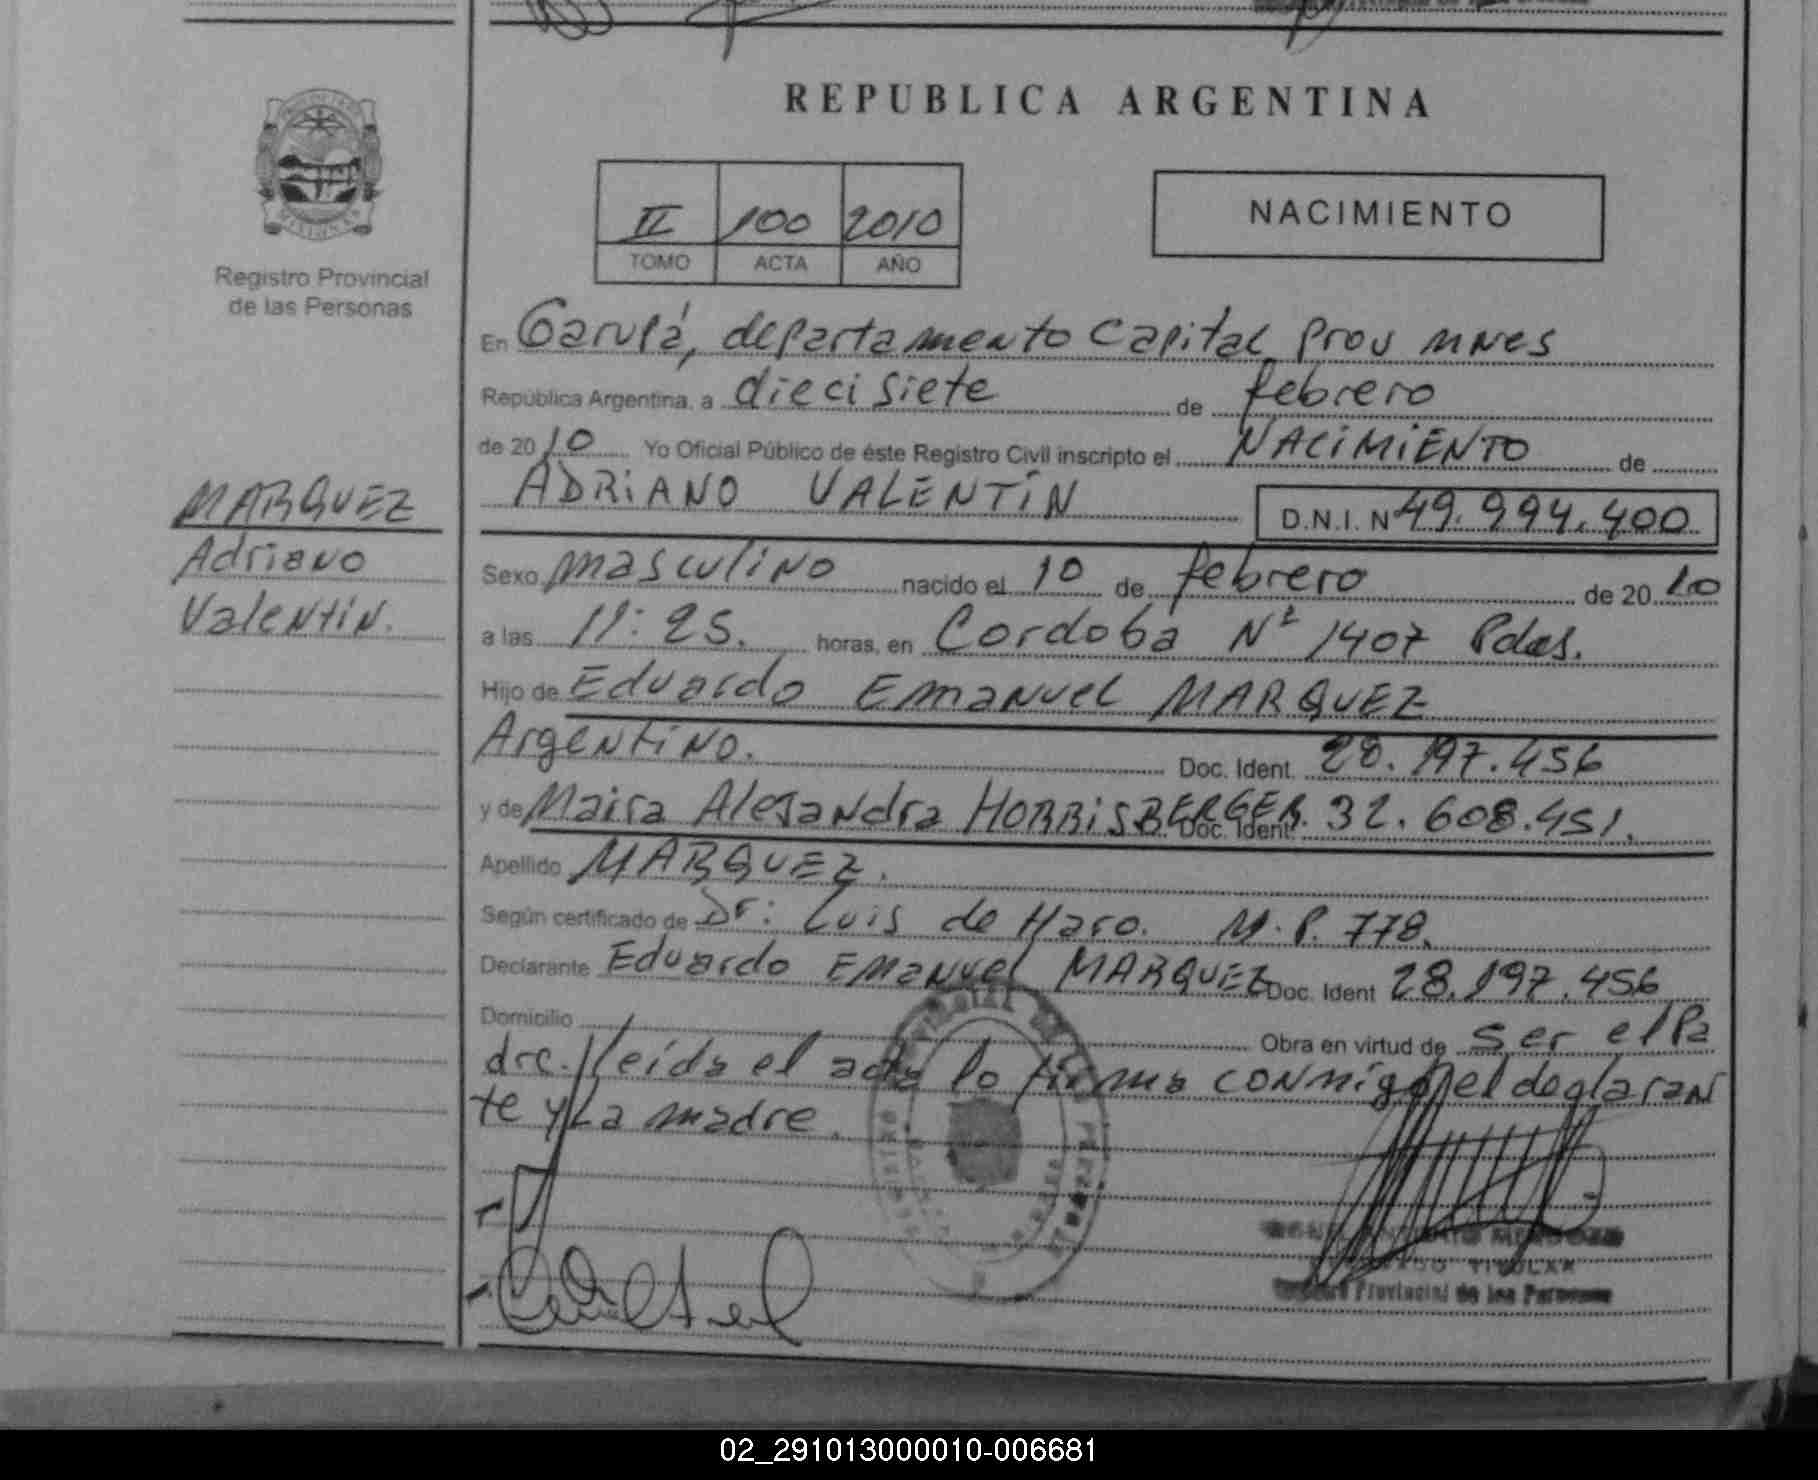 REPUBLICA ARGENTINA
II 100 2010
TOMO ACTA AÑO
NACIMIENTO
Registro Provincial
de las Personas
MARQUEZ
Adriano
Valentin.
En Garupá, departamento Capital Prov MNes
República Argentina, a diecisiete de febrero
de 2010 Yo Oficial Público de éste Registro Civil inscripto el NACIMIENTO de
ADRIANO VALENTÍN D.N.I. Nº 49.994.400
Sexo masculino nacido el 10 de febrero de 2010
a las 11:25. horas, en Cordoba Nº 1407 Pdas.
Hijo de Eduardo Emanuel MARQUEZ
Argentino. Doc. Ident. 28.197.456
y de Maira Alejandra HORRISBERGER. Doc. Ident. 32.608.451.
Apellido MARQUEZ.
Según certificado de Dr: Luis de Haro. M.P. 778.
Declarante Eduardo Emanuel MARQUEZ Doc. Ident 28.197.456
Domicilio Obra en virtud de ser el Pa
dre. leída el acta lo firma conmigo el declaran
te y La madre.
TITULAR
Provincial de las Personas
02_291013000010-006681